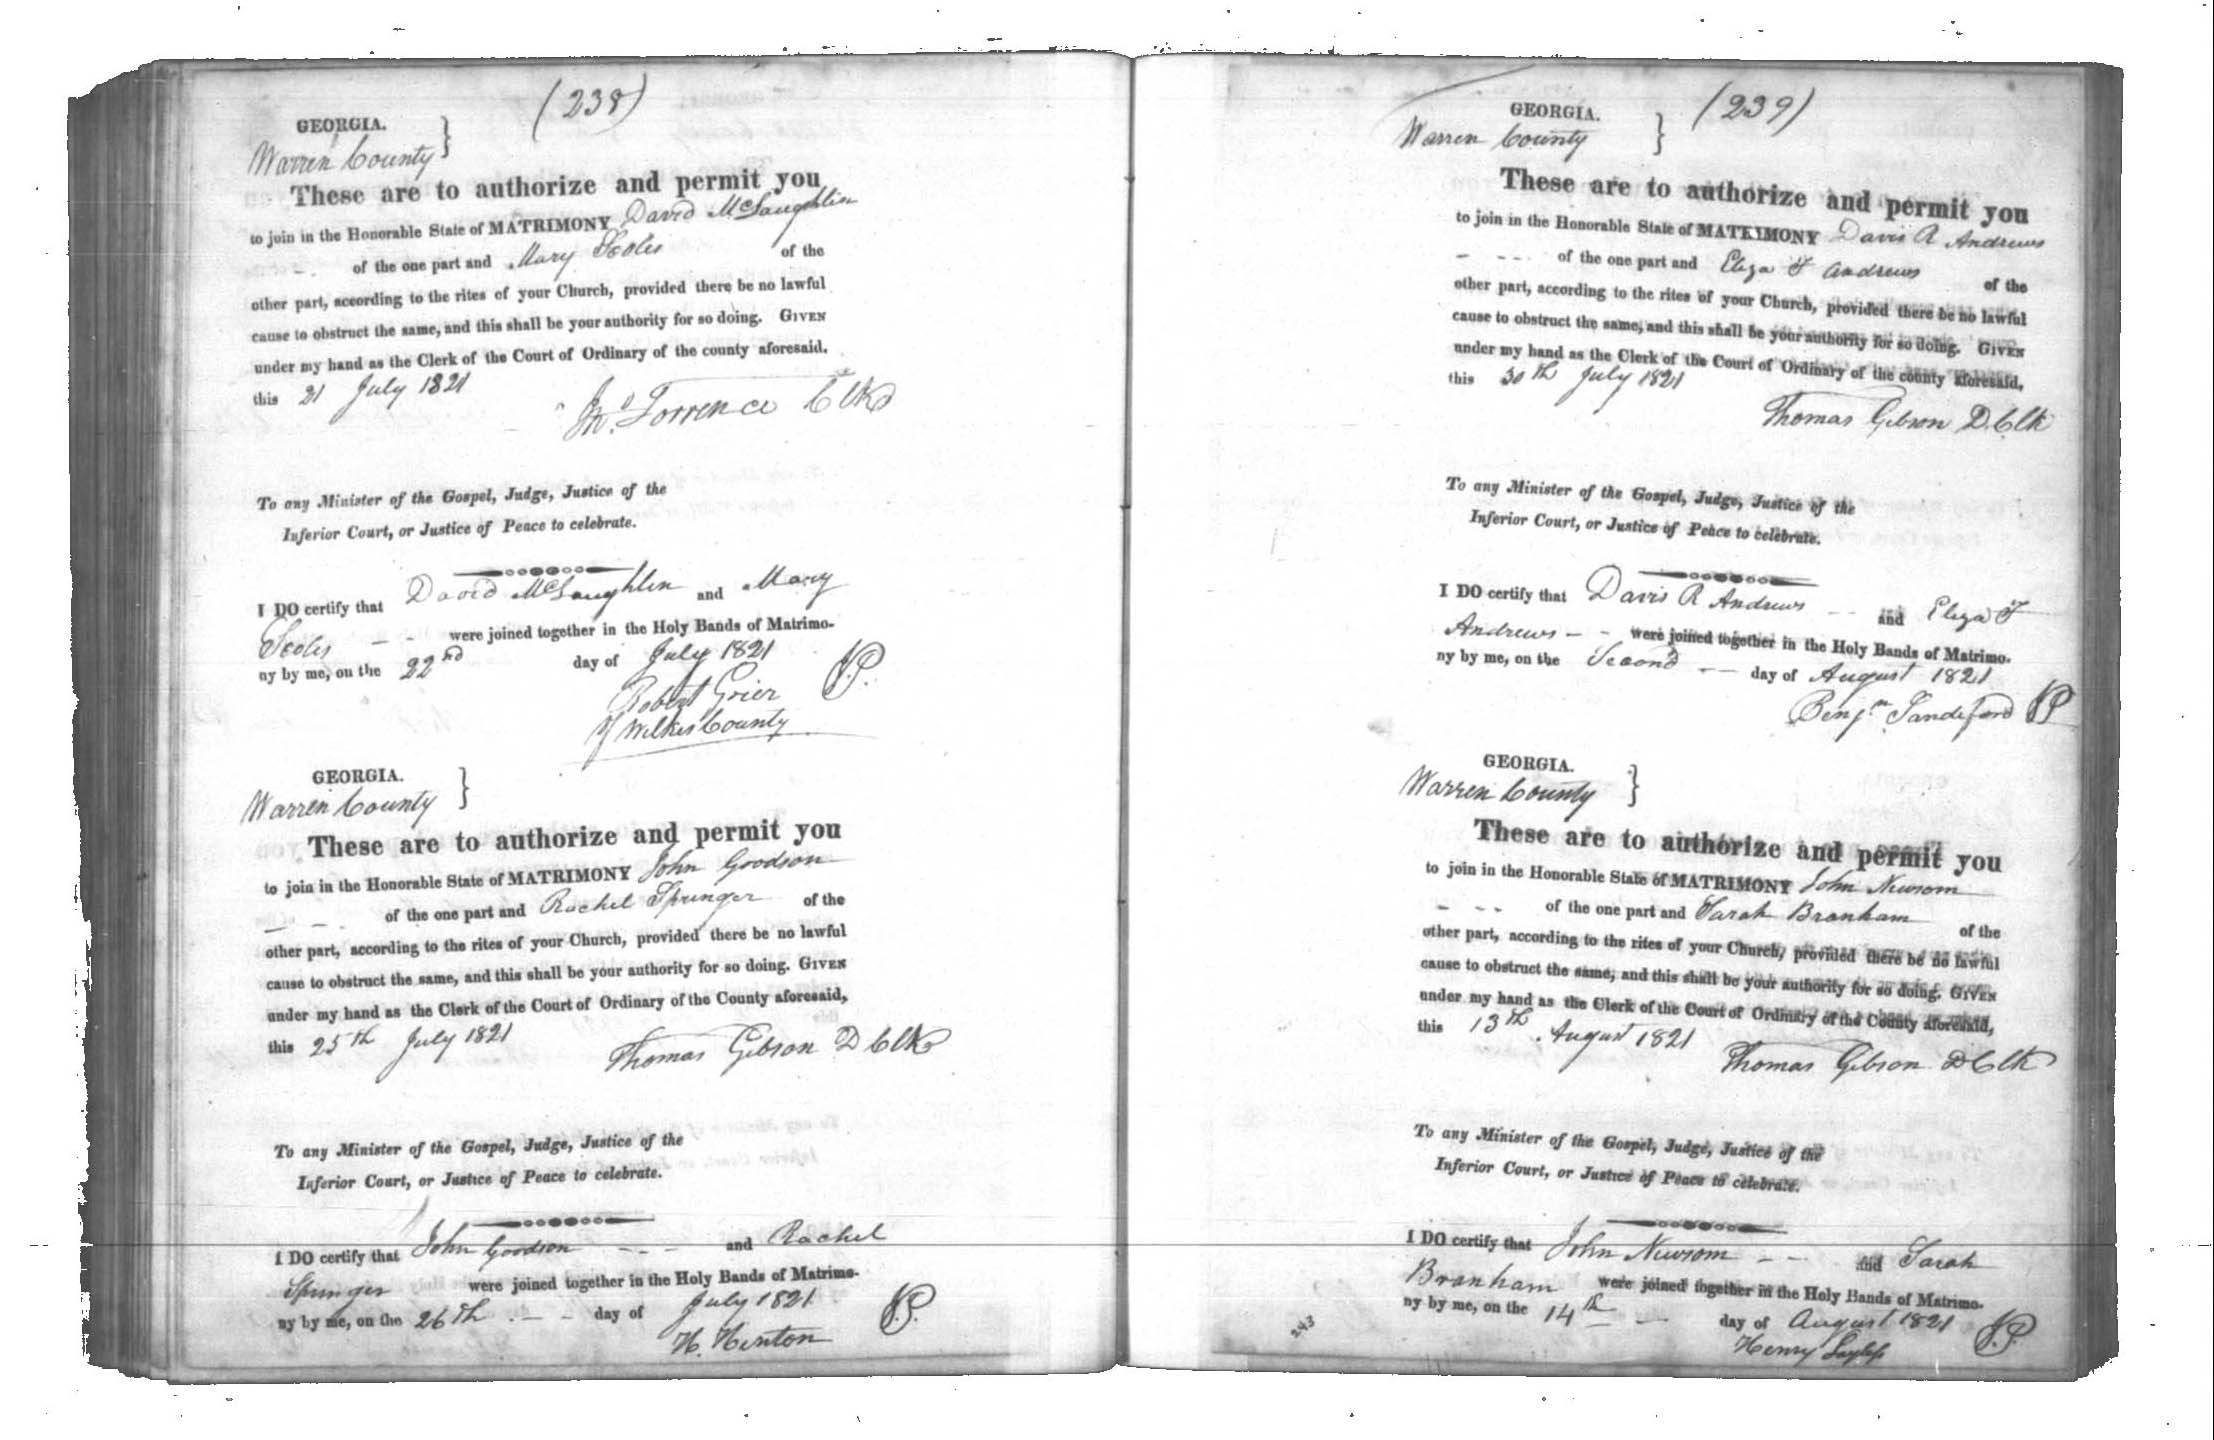 (238)
GEORGIA. }
Warren County
These are to authorize and permit you
to join in the Honorable State of MATRIMONY David McLaughlin
- - of the one part and Mary Scoles of the
other part, according to the rites of your Church, provided there be no lawful
cause to obstruct the same, and this shall be your authority for so doing. GIVEN
under my hand as the Clerk of the Court of Ordinary of the county aforesaid.
this 21 July 1821
Jno. Torrence Clk
To any Minister of the Gospel, Judge, Justice of the
Inferior Court, or Justice of Peace to celebrate.
I DO certify that David McLaughlin and Mary
Scoles - - were joined together in the Holy Bands of Matrimo-
ny by me, on the 22nd day of July 1821
Robert Grier J.P.
of Wilkes County
GEORGIA. }
Warren County
These are to authorize and permit you
to join in the Honorable State of MATRIMONY John Goodson
- - of the one part and Rachel Springer of the
other part, according to the rites of your Church, provided there be no lawful
cause to obstruct the same, and this shall be your authority for so doing. GIVEN
under my hand as the Clerk of the Court of Ordinary of the County aforesaid,
this 25th July 1821
Thomas Gibson D Clk
To any Minister of the Gospel, Judge, Justice of the
Inferior Court, or Justice of Peace to celebrate.
I DO certify that John Goodson - - - and Rachel
Springer were joined together in the Holy Bands of Matrimo-
ny by me, on the 26th - - day of July 1821
H. Hinton J.P.
(239)
GEORGIA. }
Warren County
These are to authorize and permit you
to join in the Honorable State of MATRIMONY Davis R Andrews
- - - of the one part and Eliza F Andrews of the
other part, according to the rites of your Church, provided there be no lawful
cause to obstruct the same, and this shall be your authority for so doing. GIVEN
under my hand as the Clerk of the Court of Ordinary of the county aforesaid,
this 30th July 1821
Thomas Gibson D. Clk
To any Minister of the Gospel, Judge, Justice of the
Inferior Court, or Justice of Peace to celebrate.
I DO certify that Davis R Andrews - - and Eliza F
Andrews - - were joined together in the Holy Bands of Matrimo-
ny by me, on the Second - - day of August 1821
Benjm Sandeford JP
GEORGIA. }
Warren County
These are to authorize and permit you
to join in the Honorable State of MATRIMONY John Newsom
- - - of the one part and Sarah Branham of the
other part, according to the rites of your Church, provided there be no lawful
cause to obstruct the same, and this shall be your authority for so doing. GIVEN
under my hand as the Clerk of the Court of Ordinary of the County aforesaid,
this 13th August 1821
Thomas Gibson D Clk
To any Minister of the Gospel, Judge, Justice of the
Inferior Court, or Justice of Peace to celebrate.
I DO certify that John Newsom - - and Sarah
Branham were joined together in the Holy Bands of Matrimo-
ny by me, on the 14th - - day of August 1821
Henry J.P.
243